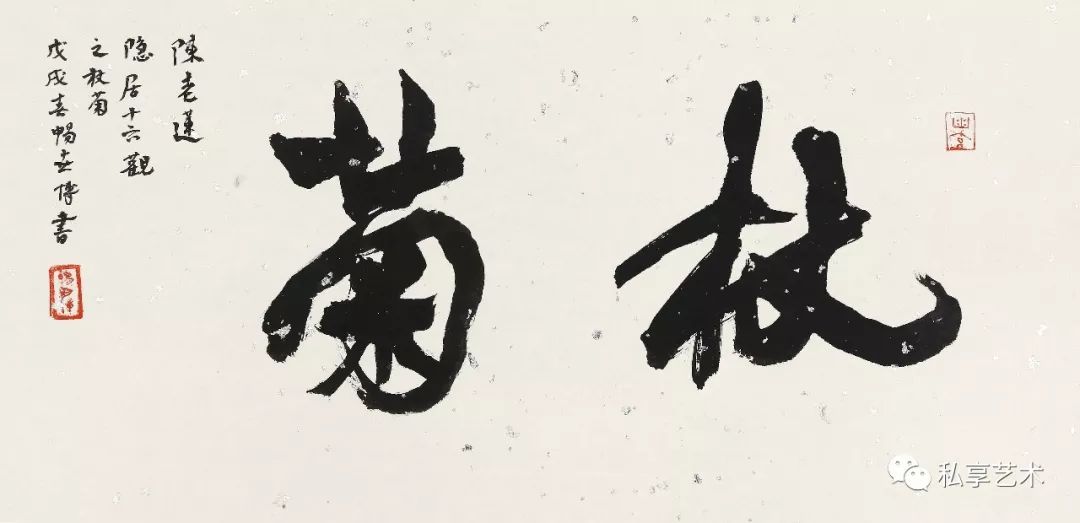 杖菊
陳老蓮
隐居十六觀
之杖菊
戊戌春暢書
私享艺术